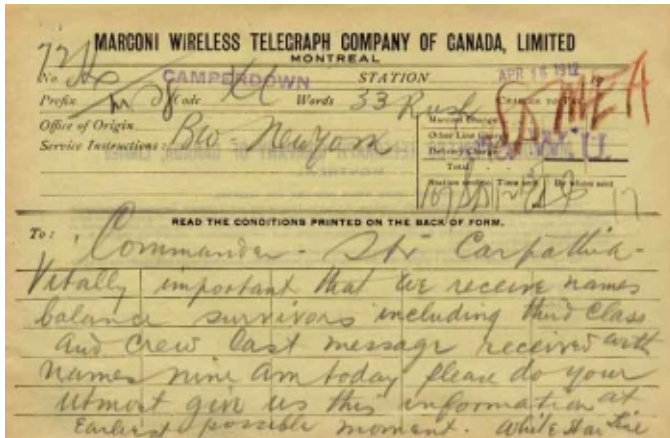 MARCONI WIRELESS TELEGRAPH COMPANY OF CANADA, LIMITED
MONTREAL
No. CAMPERDOWN STATION APR 16 1912 19
Prefix Code Words 33 Rush CHARGES TO PAY
Office of Origin Marconi Charge
Service Instructions: Bw- New York Other Line Charge
Delivery Charge
Total
Station sent to Time sent By whom sent
READ THE CONDITIONS PRINTED ON THE BACK OF FORM.
To: Commander - Str Carpathia -
Vitally important that we receive names
balance survivors including third class
and crew last message received with
names nine am today please do your
utmost give us this information at
Earliest possible moment. White Star Line